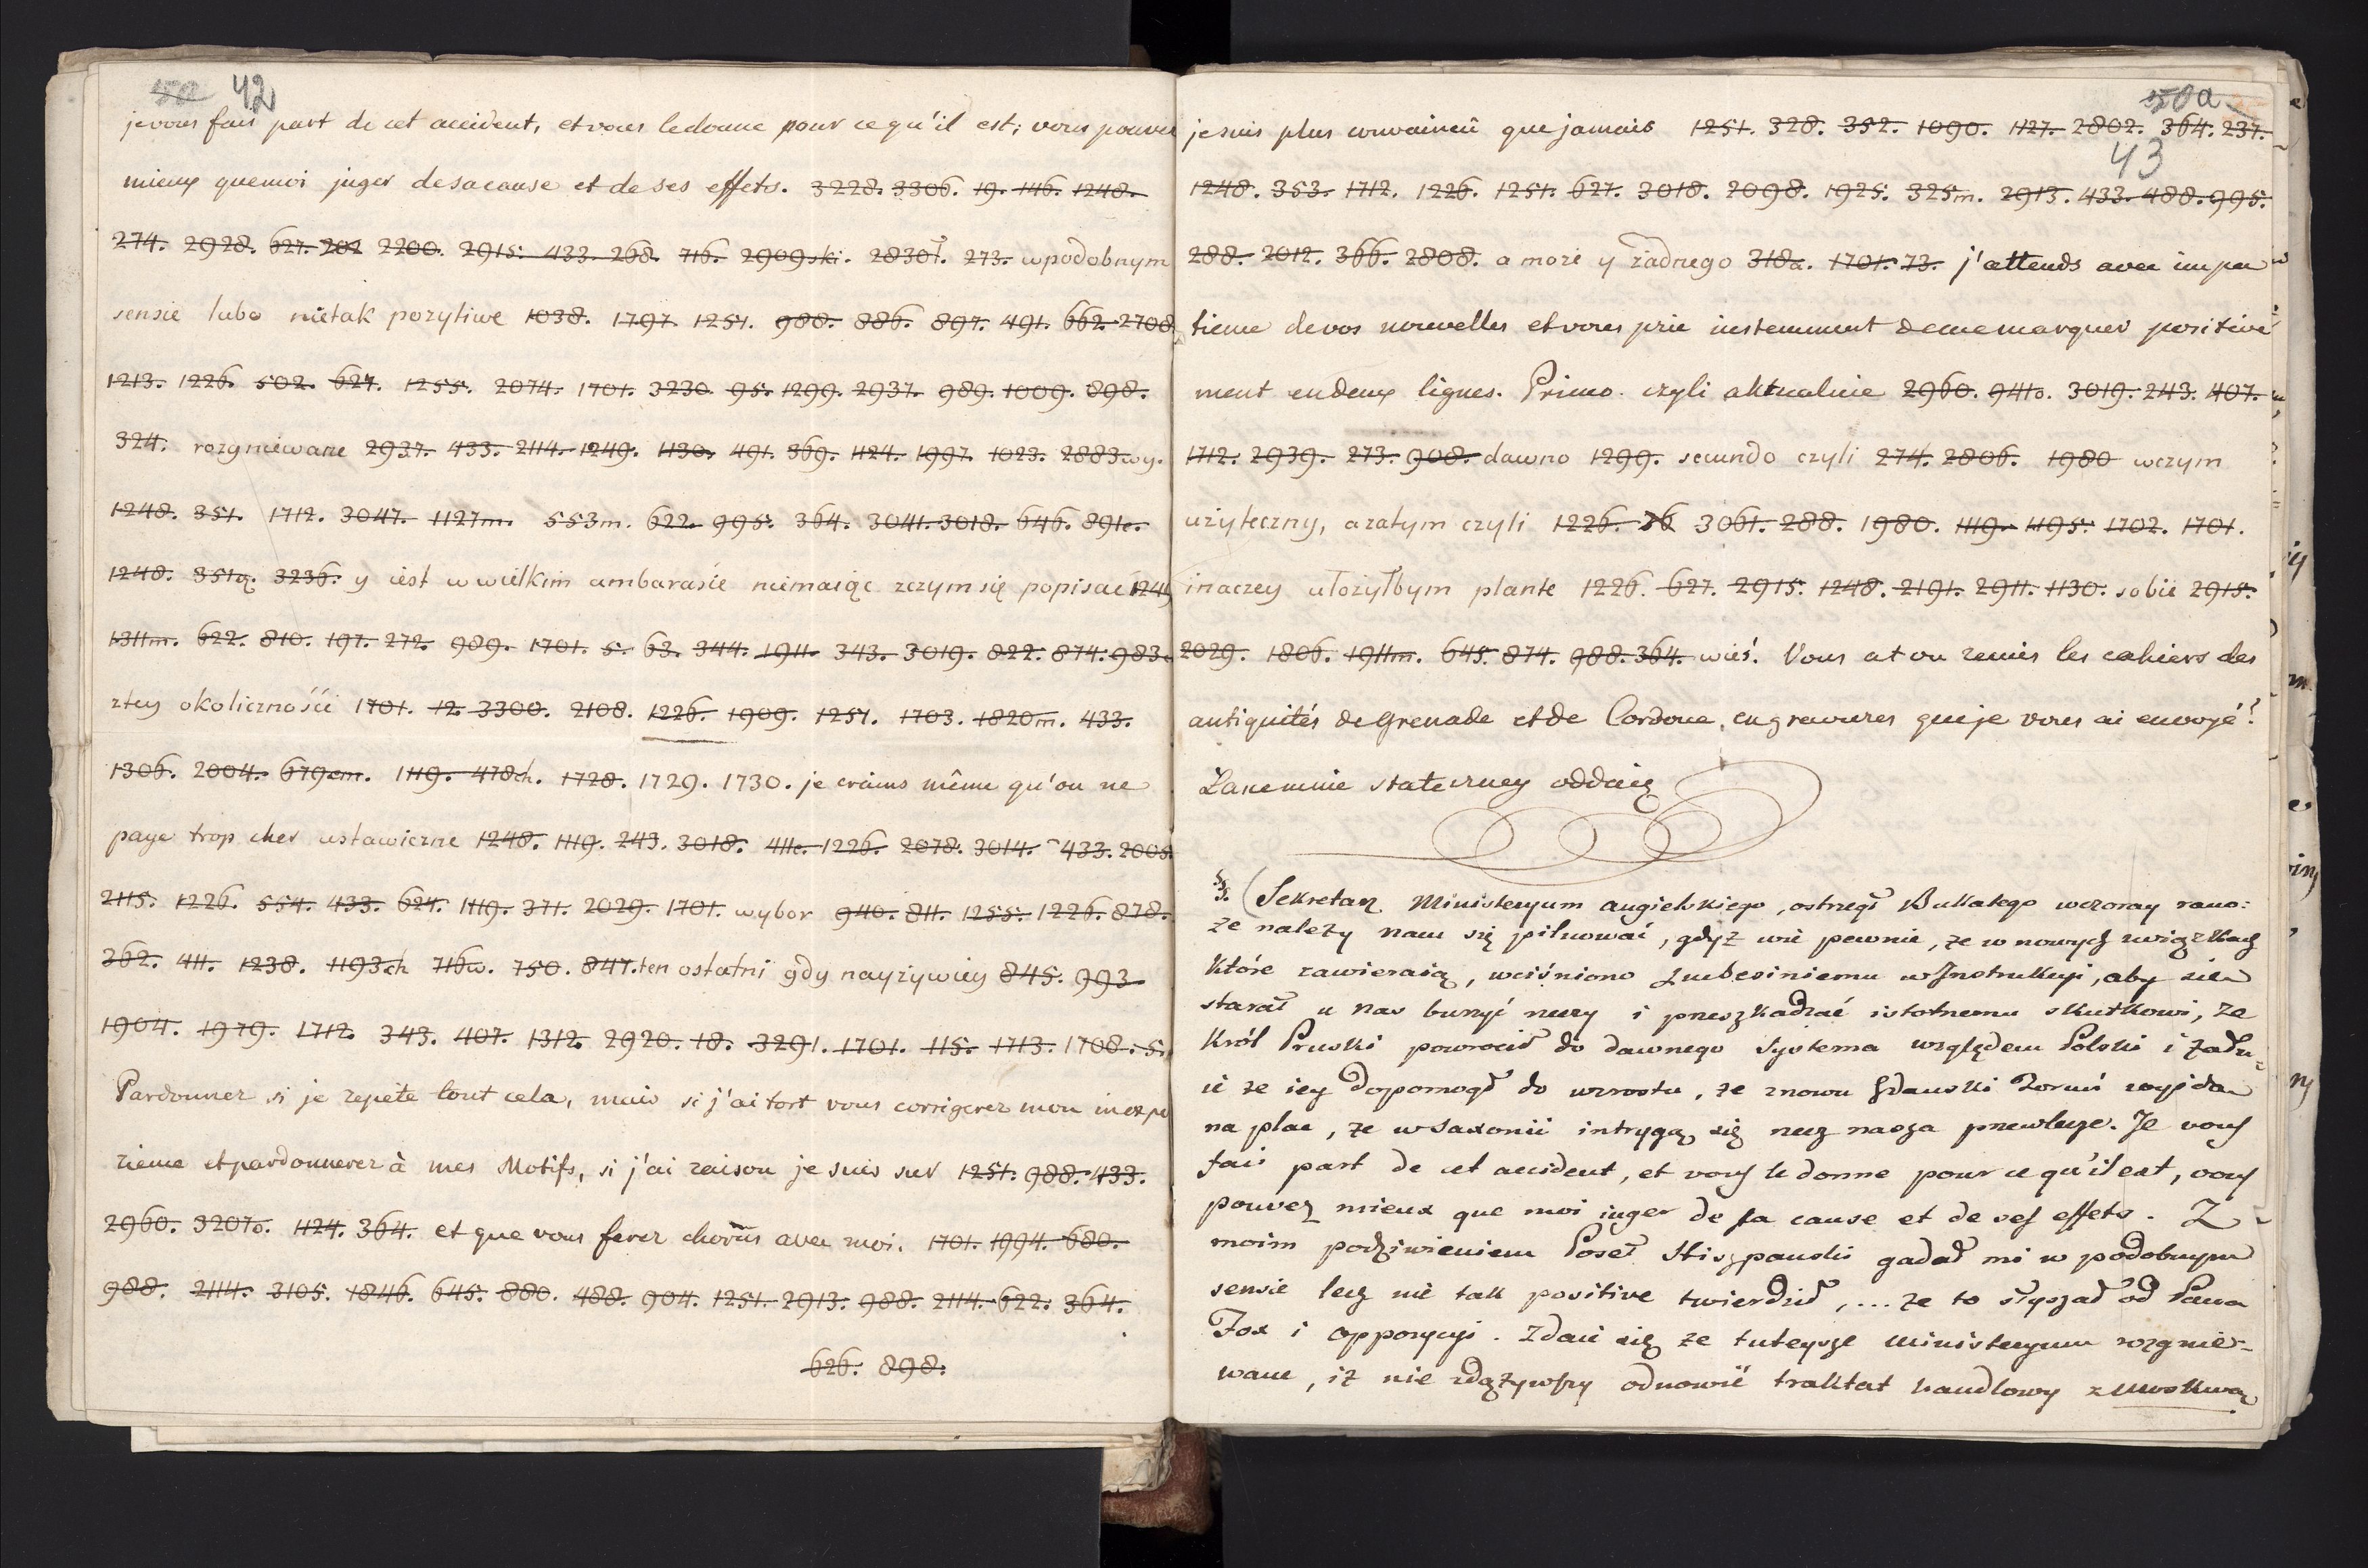 42
je vous fais part de cet accident, et vous le donne pour ce qu'il est; vous pouvez
mieux que moi juger de sa cause et de ses effets. 3228. 3306. 19. 146. 1248.
274. 2928. 627. 202 2200. 2915. 433. 268. 716. 2909ski. 2830ł. 273. w podobnym
sensie lubo nietak pozytiwe 1038. 1797. 1251. 988. 886. 897. 491. 662. 2708
1213. 1226. 502. 627. 1255. 2074. 1701. 3230. 95. 1299. 2937. 989. 1009. 898.
324. rozgniewane 2937. 433. 2114. 1249. 1130. 491. 369. 1124. 1997. 1023. 2883wy.
1248. 351. 1712. 3047. 1127m. 553m. 622. 995. 364. 3041. 3018. 646. 891e.
1248. 351ą. 3236. y iest w wielkim ambarasie niemaiąc zczym się popisać 1249
1311m. 622. 810. 197. 272. 989. 1701. 5. 63. 344. 1911. 343. 3019. 822. 874. 983.
ztey okoliczności 1701. 12. 3300. 2108. 1226. 1909. 1251. 1703. 1820m. 433.
1306. 2004. 679em. 1119. 478ch. 1728. 1729. 1730. je crains même qu'on ne
paye trop cher ustawiczne 1248. 1119. 243. 3018. 411e. 1226. 2078. 3014. 433. 2005.
2115. 1226. 554. 433. 624. 1119. 371. 2029. 1701. wybor 940. 811. 1255. 1226. 878.
362. 411. 1238. 1193ch 716w. 750. 847. ten ostatni gdy nayżywiey 845. 993
1904. 1979. 1712. 343. 407. 1312. 2920. 18. 3291. 1701. 115. 1713. 1708. 5.
Pardonnez si je repete tout cela, mais si j'ai tort vous corrigerez mon inexpe
rience et pardonnerez à mes Motifs, si j'ai raison je suis sur 1251. 988. 433.
2960. 3207o. 1124. 364. et que vous ferez chorus avec moi. 1701. 1994. 680.
988. 2114. 3105. 1846. 645. 880. 488. 904. 1251. 2913. 988. 2114. 622. 364.
626. 898.
50a
43
je suis plus convaincû que jamais 1251. 328. 352. 1090. 1127. 2802. 364. 237.
1248. 353. 1712. 1226. 1251. 627. 3018. 2098. 1925. 325m. 2913. 433. 488. 995.
288. 2012. 366. 2808. a może y żadnego 318a. 1701. 73. j'attends avec impa
tience de vos nouvelles et vous prie instemment de me marquer positive
ment en deux lignes. Primo czyli aktualnie 2960. 941o. 3019. 243. 407.
1712. 2939. 273. 908. dawno 1299. secundo czyli 274. 2806. 1980 w czym
użyteczny, a zatym czyli 1226. 36 3061. 288. 1980. 1119. 1195. 1702. 1701.
inaczey ułożyłbym plantę 1226. 627. 2915. 1248. 2191. 2911. 1130. sobie 2915.
2029. 1806. 1911m. 645. 874. 988. 364. wieś. Vous at on remis les cahiers des
antiquités de Grenade et de Cordoue, en gravures que je vous ai envoyé?
Łaskennie stateczney oddaię
§. (Sekretarz Ministeryum angielskiego, ostrzegł Bukatego wczoray rano:
że należy nam się pilnować, gdyż wie pewnie, że w nowych związkach
które zawieraią, wciśniono Luchesiniemu w Instrukcyi, aby się
starał u nas burzyć rzeczy i przeszkadzać istotnemu skutkowi, że
Król Pruski powrócił do dawnego Systema względem Polski i żału-
ie że iey dopomogł do wzrostu, że znowu Gdański Toruń wyidą
na plac, że w Saxonii intrygą się rzecz nasza przewlecze. Je vous
fais part de cet accident, et vous le donne pour ce qu'il est, vous
pouvez mieux que moi juger de sa cause et de ses effets. Z
moim podziwieniem Poseł Hiszpański gadał mi w podobnym
sensie lecz nie tak positive twierdził, ... że to słyszał od Pana
Fox i oppozycyi. Zdaie się że tuteysze Ministeryum rozgnie-
wane, iż nie zdążywszy odnowić traktat handlowy z Moskwą